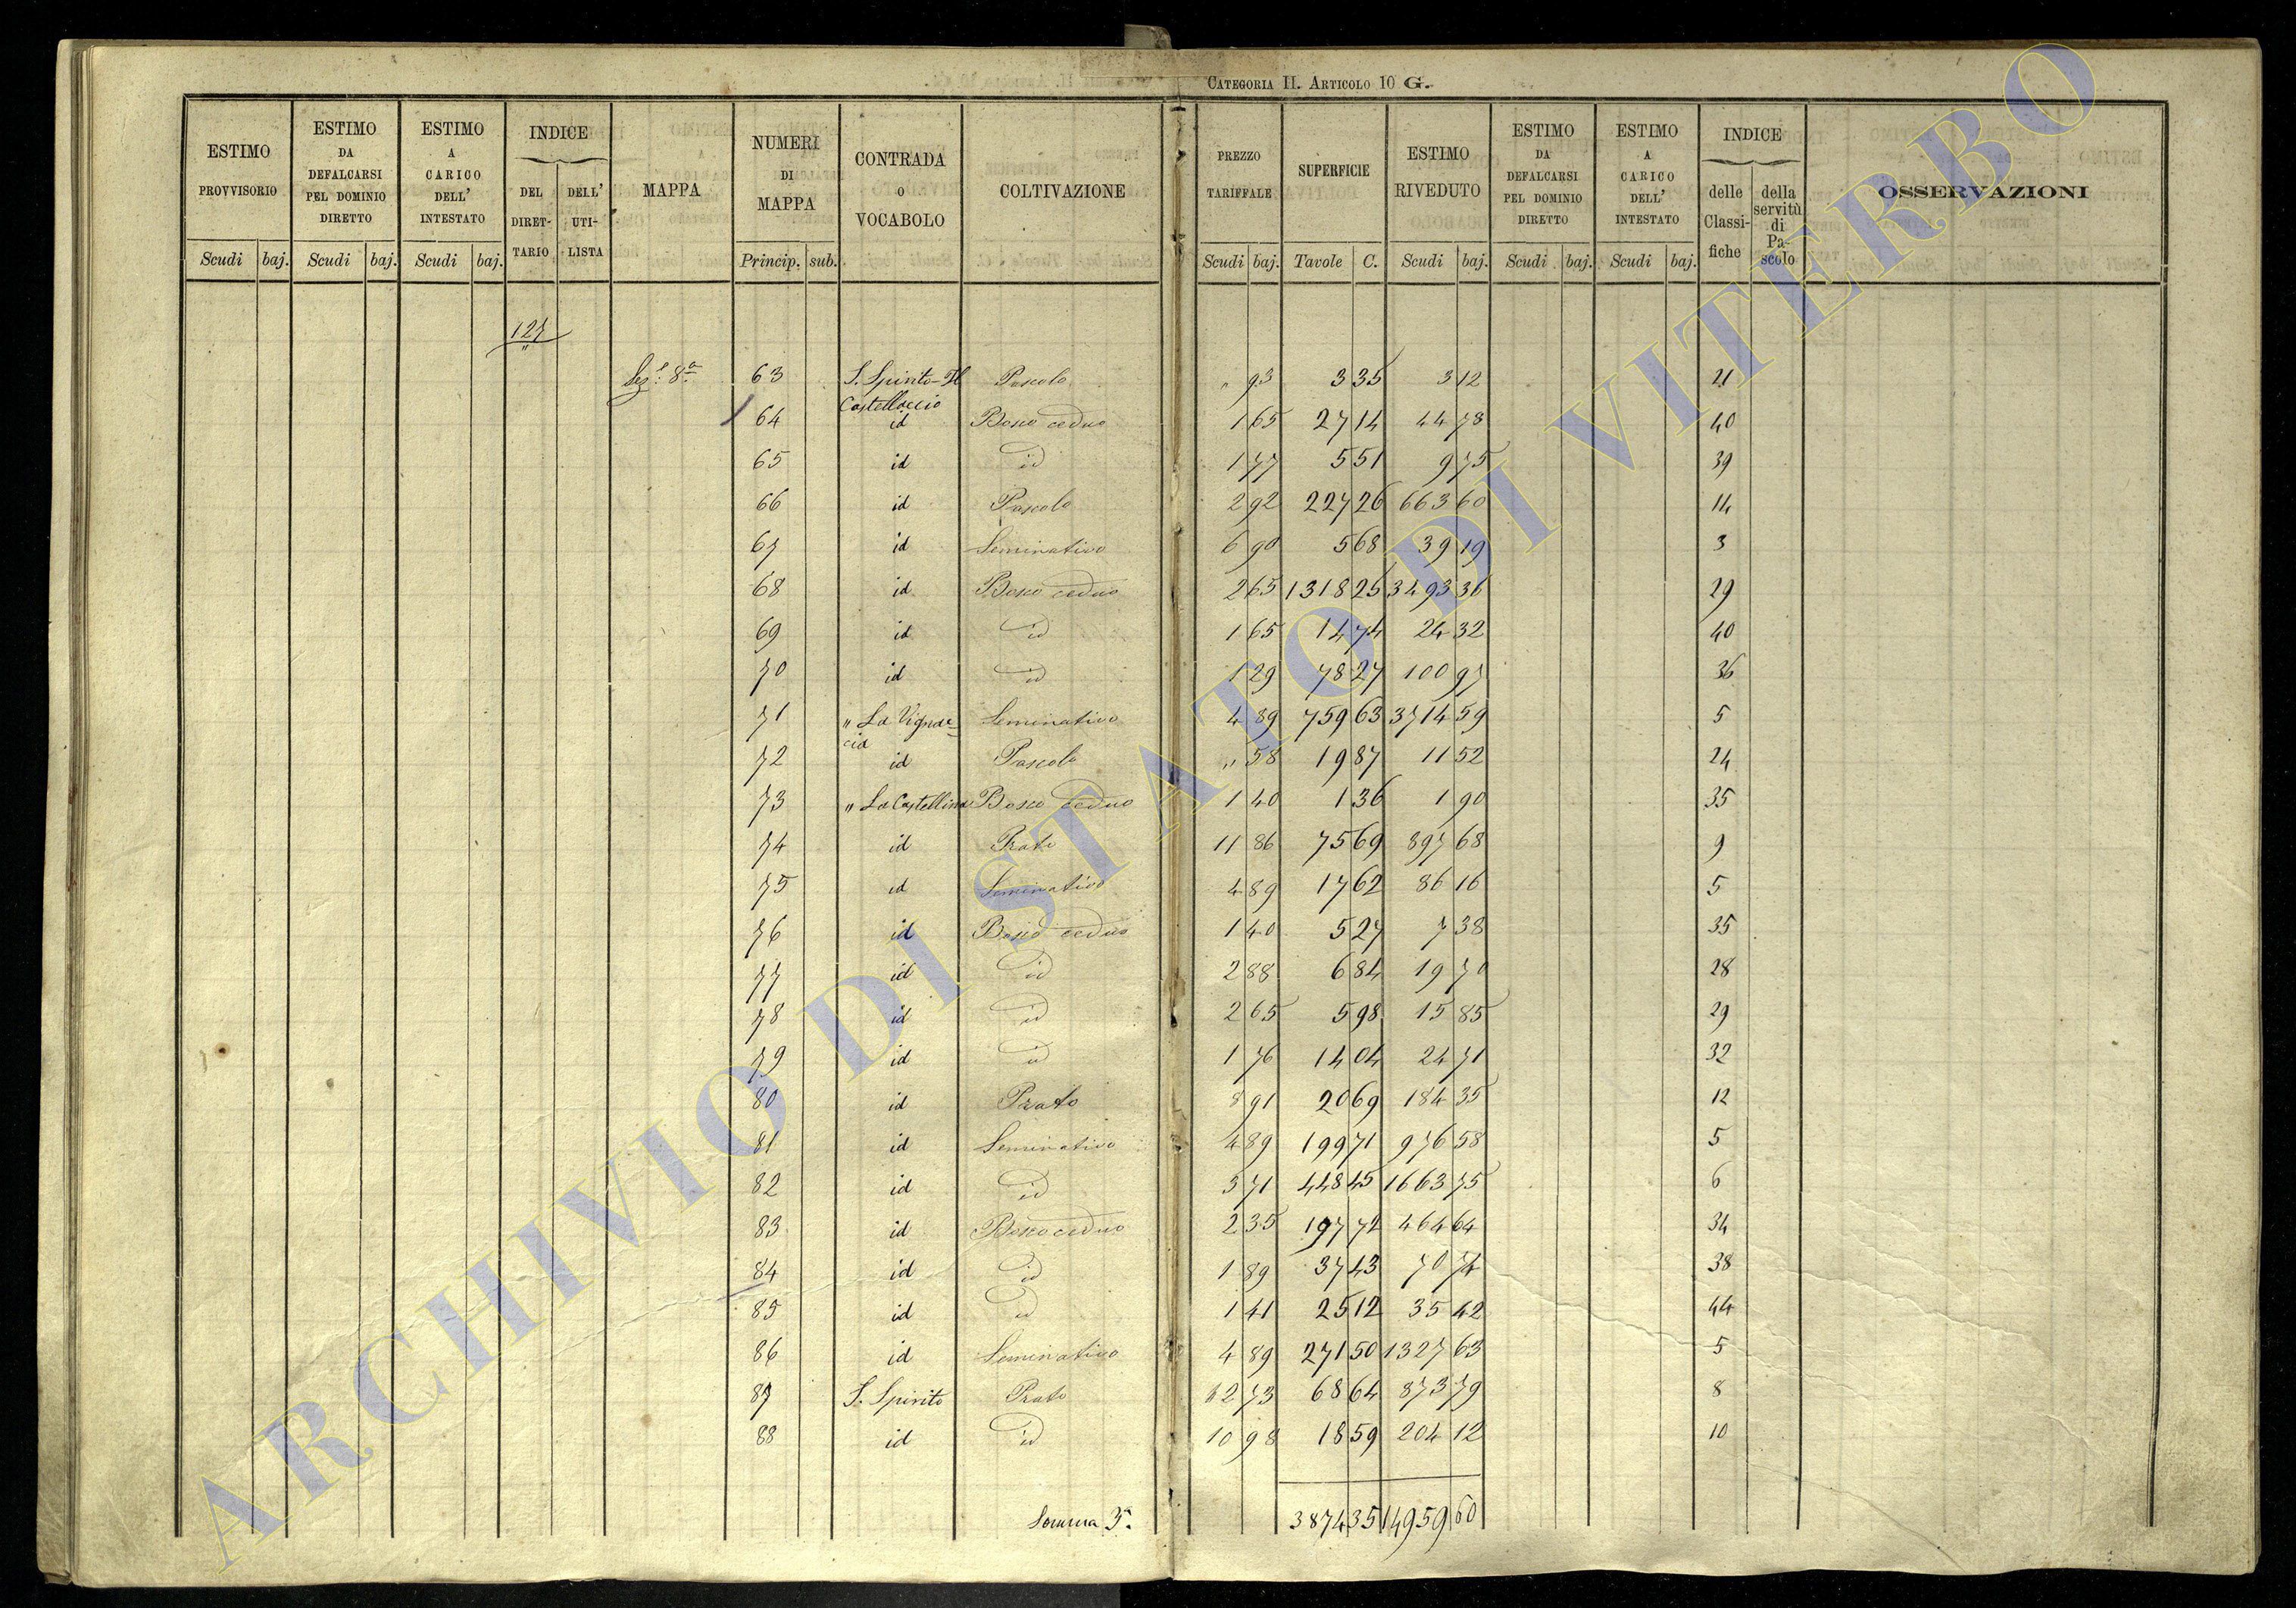 CATEGORIA II. ARTICOLO 10 G.
ESTIMO PROVVISORIO Scudi baj. ESTIMO DA DEFALCARSI PEL DOMINIO DIRETTO Scudi baj. ESTIMO A CARICO DELL' INTESTATO Scudi baj. INDICE DEL DIRET- TARIO DELL' UTI- LISTA MAPPA NUMERI DI MAPPA Princip. sub. CONTRADA O VOCABOLO COLTIVAZIONE PREZZO TARIFFALE Scudi baj. SUPERFICIE Tavole C. ESTIMO RIVEDUTO Scudi baj. ESTIMO DA DEFALCARSI PEL DOMINIO DIRETTO Scudi baj. ESTIMO A CARICO DELL' INTESTATO Scudi baj. INDICE delle Classi- fiche della servitù di Pa- scolo OSSERVAZIONI
127
"
Sez.e 8a 63 S. Spirito - Il Pascolo " 93 3 35 3 12 21
Castellaccio
64 id Bosco ceduo 1 65 27 14 44 78 40
65 id id 1 77 5 51 9 75 39
66 id Pascolo 2 92 227 26 663 60 14
67 id Seminativo 6 90 5 68 39 19 3
68 id Bosco ceduo 2 65 1318 25 3493 36 29
69 id id 1 65 14 74 24 32 40
70 id id 1 29 78 27 100 97 36
71 " La Vignac- Seminativo 4 89 759 63 3714 59 5
cia
72 id Pascolo " 58 19 87 11 52 24
73 " La Castellina Bosco ceduo 1 40 1 36 1 90 35
74 id Prato 11 86 75 69 897 68 9
75 id Seminativo 4 89 17 62 86 16 5
76 id Bosco ceduo 1 40 5 27 7 38 35
77 id id 2 88 6 84 19 70 28
78 id id 2 65 5 98 15 85 29
79 id id 1 76 14 04 24 71 32
80 id Prato 8 91 20 69 184 35 12
81 id Seminativo 4 89 199 71 976 58 5
82 id id 3 71 448 45 1663 75 6
83 id Bosco ceduo 2 35 197 72 464 64 34
84 id id 1 89 37 43 70 74 38
85 id id 1 41 25 12 35 42 44
86 id Seminativo 4 89 271 50 1327 63 5
87 S. Spirito Prato 12 73 68 64 873 79 8
88 id id 10 98 18 59 204 12 10
Somma 3874 35 14959 60
ARCHIVIO DI STATO DI VITERBO